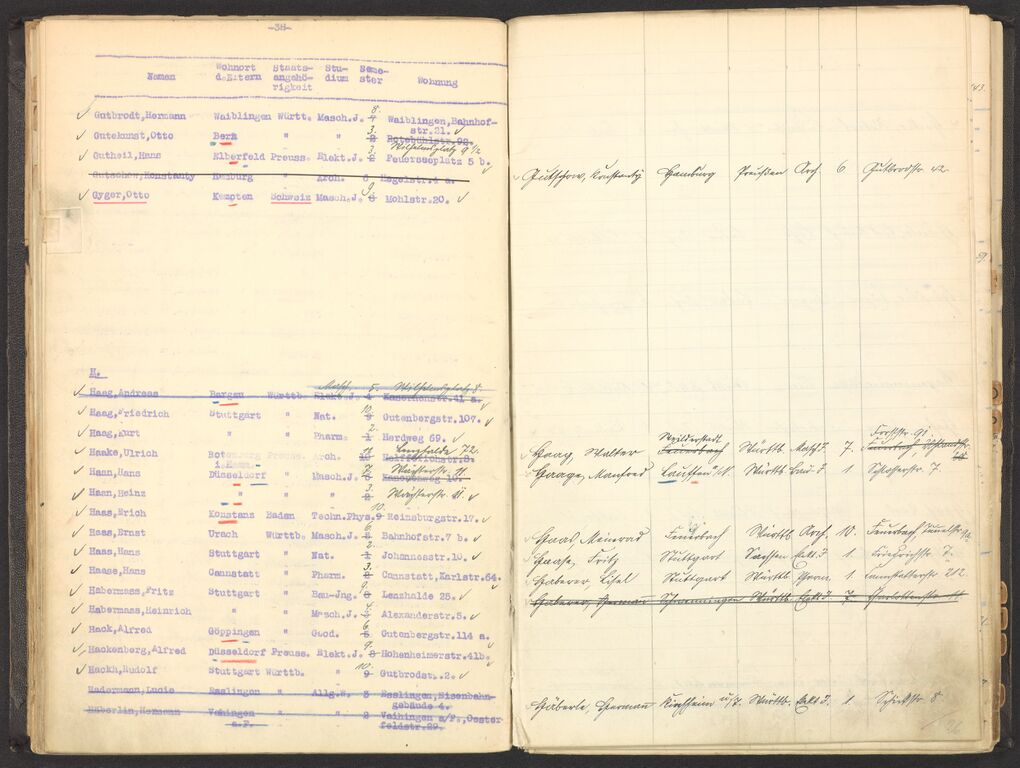 -38-
Namen Wohnort d.Eltern Staats-angehö-rigkeit Stu-dium Seme-ster Wohnung
Gutbrodt,Hermann Waiblingen Württ. Masch.J. 4 8. Waiblingen,Bahnhof-
str.21.
Gutekunst,Otto Bern " " 2 3. Rotebühlstr.92.
Wilhelmsplatz 9 1/2
Gutheil,Hans Elberfeld Preuss. Elekt.J. 2 3. Feuerseeplatz 5 b.
Gutschow,Konstanty Hamburg " Arch. 6 Hegelstr.4 a.
Gyger,Otto Kempten Schweiz Masch.J. 8 9. Mohlstr.20.
H.
Masch. 5. Wilhelmsplatz 8.
Haag,Andreas Bargau Württb. Elekt.J. 4 Kasernenstr.41 a.
Haag,Friedrich Stuttgart " Nat. 9 10. Gutenbergstr.107.
Haag,Kurt " " Pharm. 1 2. Herdweg 69.
Haake,Ulrich Rotenburg i.Hann. Preuss. Arch. Lenzhalde 72.
Haan,Hans Düsseldorf " Masch.J. 7. Wächterstr. 11.
Haan,Heinz " " " 2 3. Wächterstr. 11.
Haas,Erich Konstanz Baden Techn.Phys. 9 10. Reinsburgstr.17.
Haas,Ernst Urach Württb. Masch.J. 6. Bahnhofstr.7 b.
Haas,Hans Stuttgart " Nat. 1 2. Johannesstr.10.
Haase,Hans Cannstatt " Pharm. 2 3. Cannstatt,Karlstr.64.
Habermass,Fritz Stuttgart " Bau-Jng. 8 9. Lenzhalde 25.
Habermass,Heinrich " " Masch.J. Alexanderstr.5.
Hack,Alfred Göppingen " Geod. 5 6. Gutenbergstr.114 a.
Hackenberg,Alfred Düsseldorf Preuss. Elekt.J. 8 9. Hohenheimerstr.41b.
Hackh,Rudolf Stuttgart Württb. " 9 10. Gutbrodstr.2.
Hadermann,Lucie Esslingen " Allg.W. 3 Esslingen,Eisenbahn-
gebäude 4.
Häberlin,Hermann Vaihingen a.F. " " 2 Vaihingen a/F.,Oester-
feldstr.29.
Gutschow, Konstanty Hamburg Preußen Arch. 6 Gutbrodstr. 42
Weilderstadt Forststr. 91
Haag, Walter Feuerbach Württb. Masch.J 7.
Haage, Manfred Lauffen a/N. Württb. Bau-J 1 Schloßstr. 7.
Haas, Meinrad Feuerbach Württb. Arch 10. Feuerbach,
Haase, Fritz Stuttgart Sachsen Elekt.J 1 Friedrichstr. 7.
Haberer, Lisel Stuttgart Württb. 1. Cannstatterstr. 212
Haberer, Hermann Schwenningen Württb. Elekt.J. 7.
Häberle, Hermann Kirchheim u/T. Württb. Elekt.J. 1 Schickstr 8